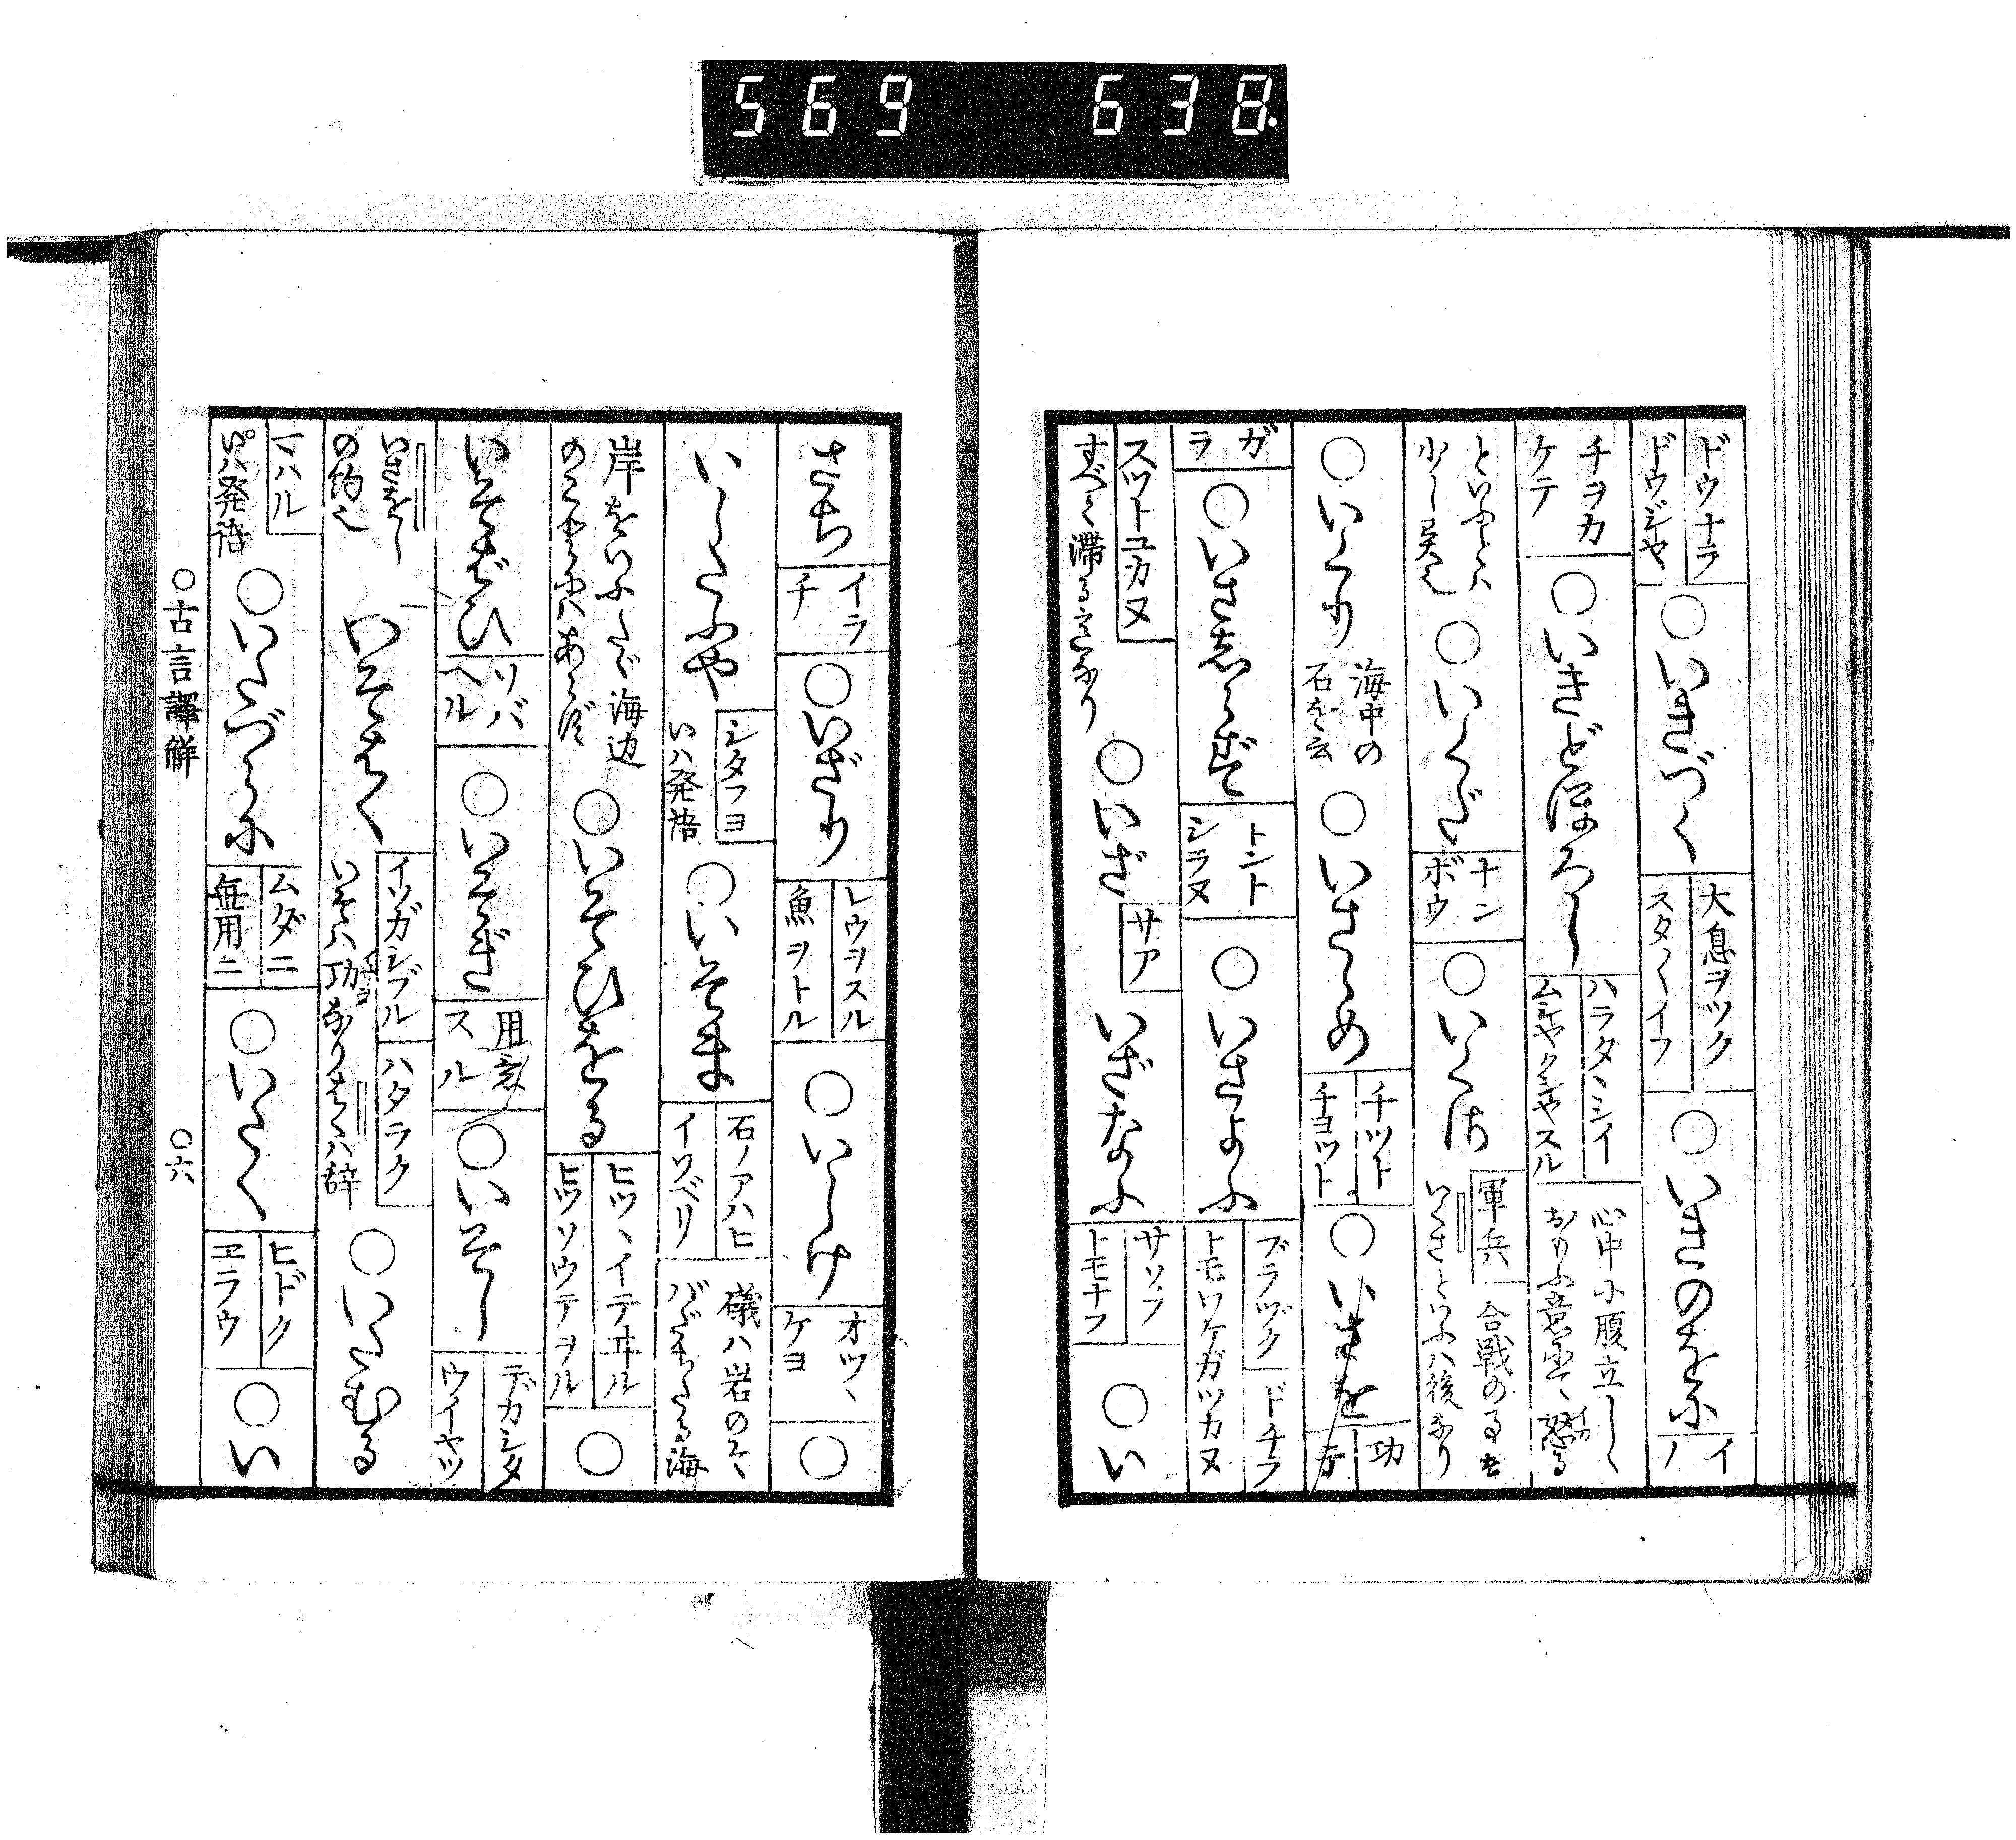 569 638.
ドウナラ
ドウジヤ
○いきづく
大息ヲツク
スタ〱イフ
○いきのをに
イ
ノ
チヲカ
ケテ
○いきどほろし
ハラタヽシイ
ムシヤクシヤスル
心中に腹立しく
おもふ意にて怒る
といふとハ
少し異也
○いくだ
ナン
ボウ
○いくさ
軍兵
合戦の事を
いくさといふハ後なり
○いくり
海中の
石を云
○いさゝめ
チツト
チヨツト
○いさを
功
ガ
ラ
○いさしらず
トント
シラヌ
○いさよふ
ブラヅク
ドチラ
トモツケガツカヌ
スツトユカヌ
すべて滞る意なり
○いざ
サア
いざなふ
サソフ
トモナフ
○い
さち
イラ
チ
○いざり
レウヲスル
魚ヲトル
○いしけ
オツヽ
ケヨ
○
いしたふや
シタフヨ
いハ発語
○いそま
石ノアハヒ
イソベリ
礒ハ岩のそ
ばだちたる海
岸をいふたゞ海辺
のことにハあらず
○いそひをる
ヒツヽイテヰル
ヒツソウテヲル
○
いそばひ
ソバ
ヘル
○いそぎ
用意
スル
○いそし
デカシタ
ウイヤツ
いさをし
の約也
いそはく
イソガシブル
ハタラク
いそハ功なりはくハ辞
○いたむる
マハル
いハ発語
○いたづらに
ムダニ
無用ニ
○いたく
ヒドク
ヱラウ
○い
○古言譯解
○六